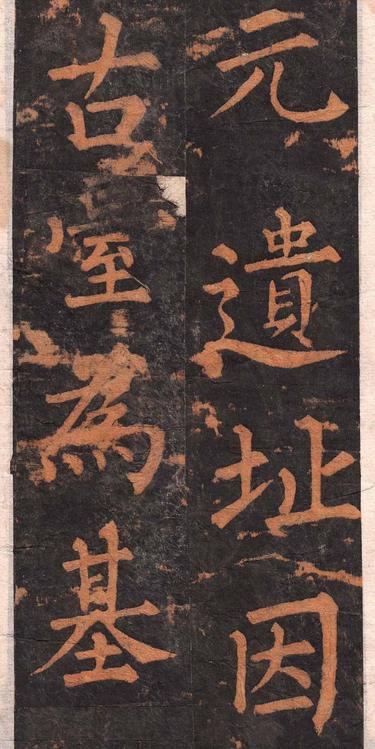 元遺址因
古臺為基